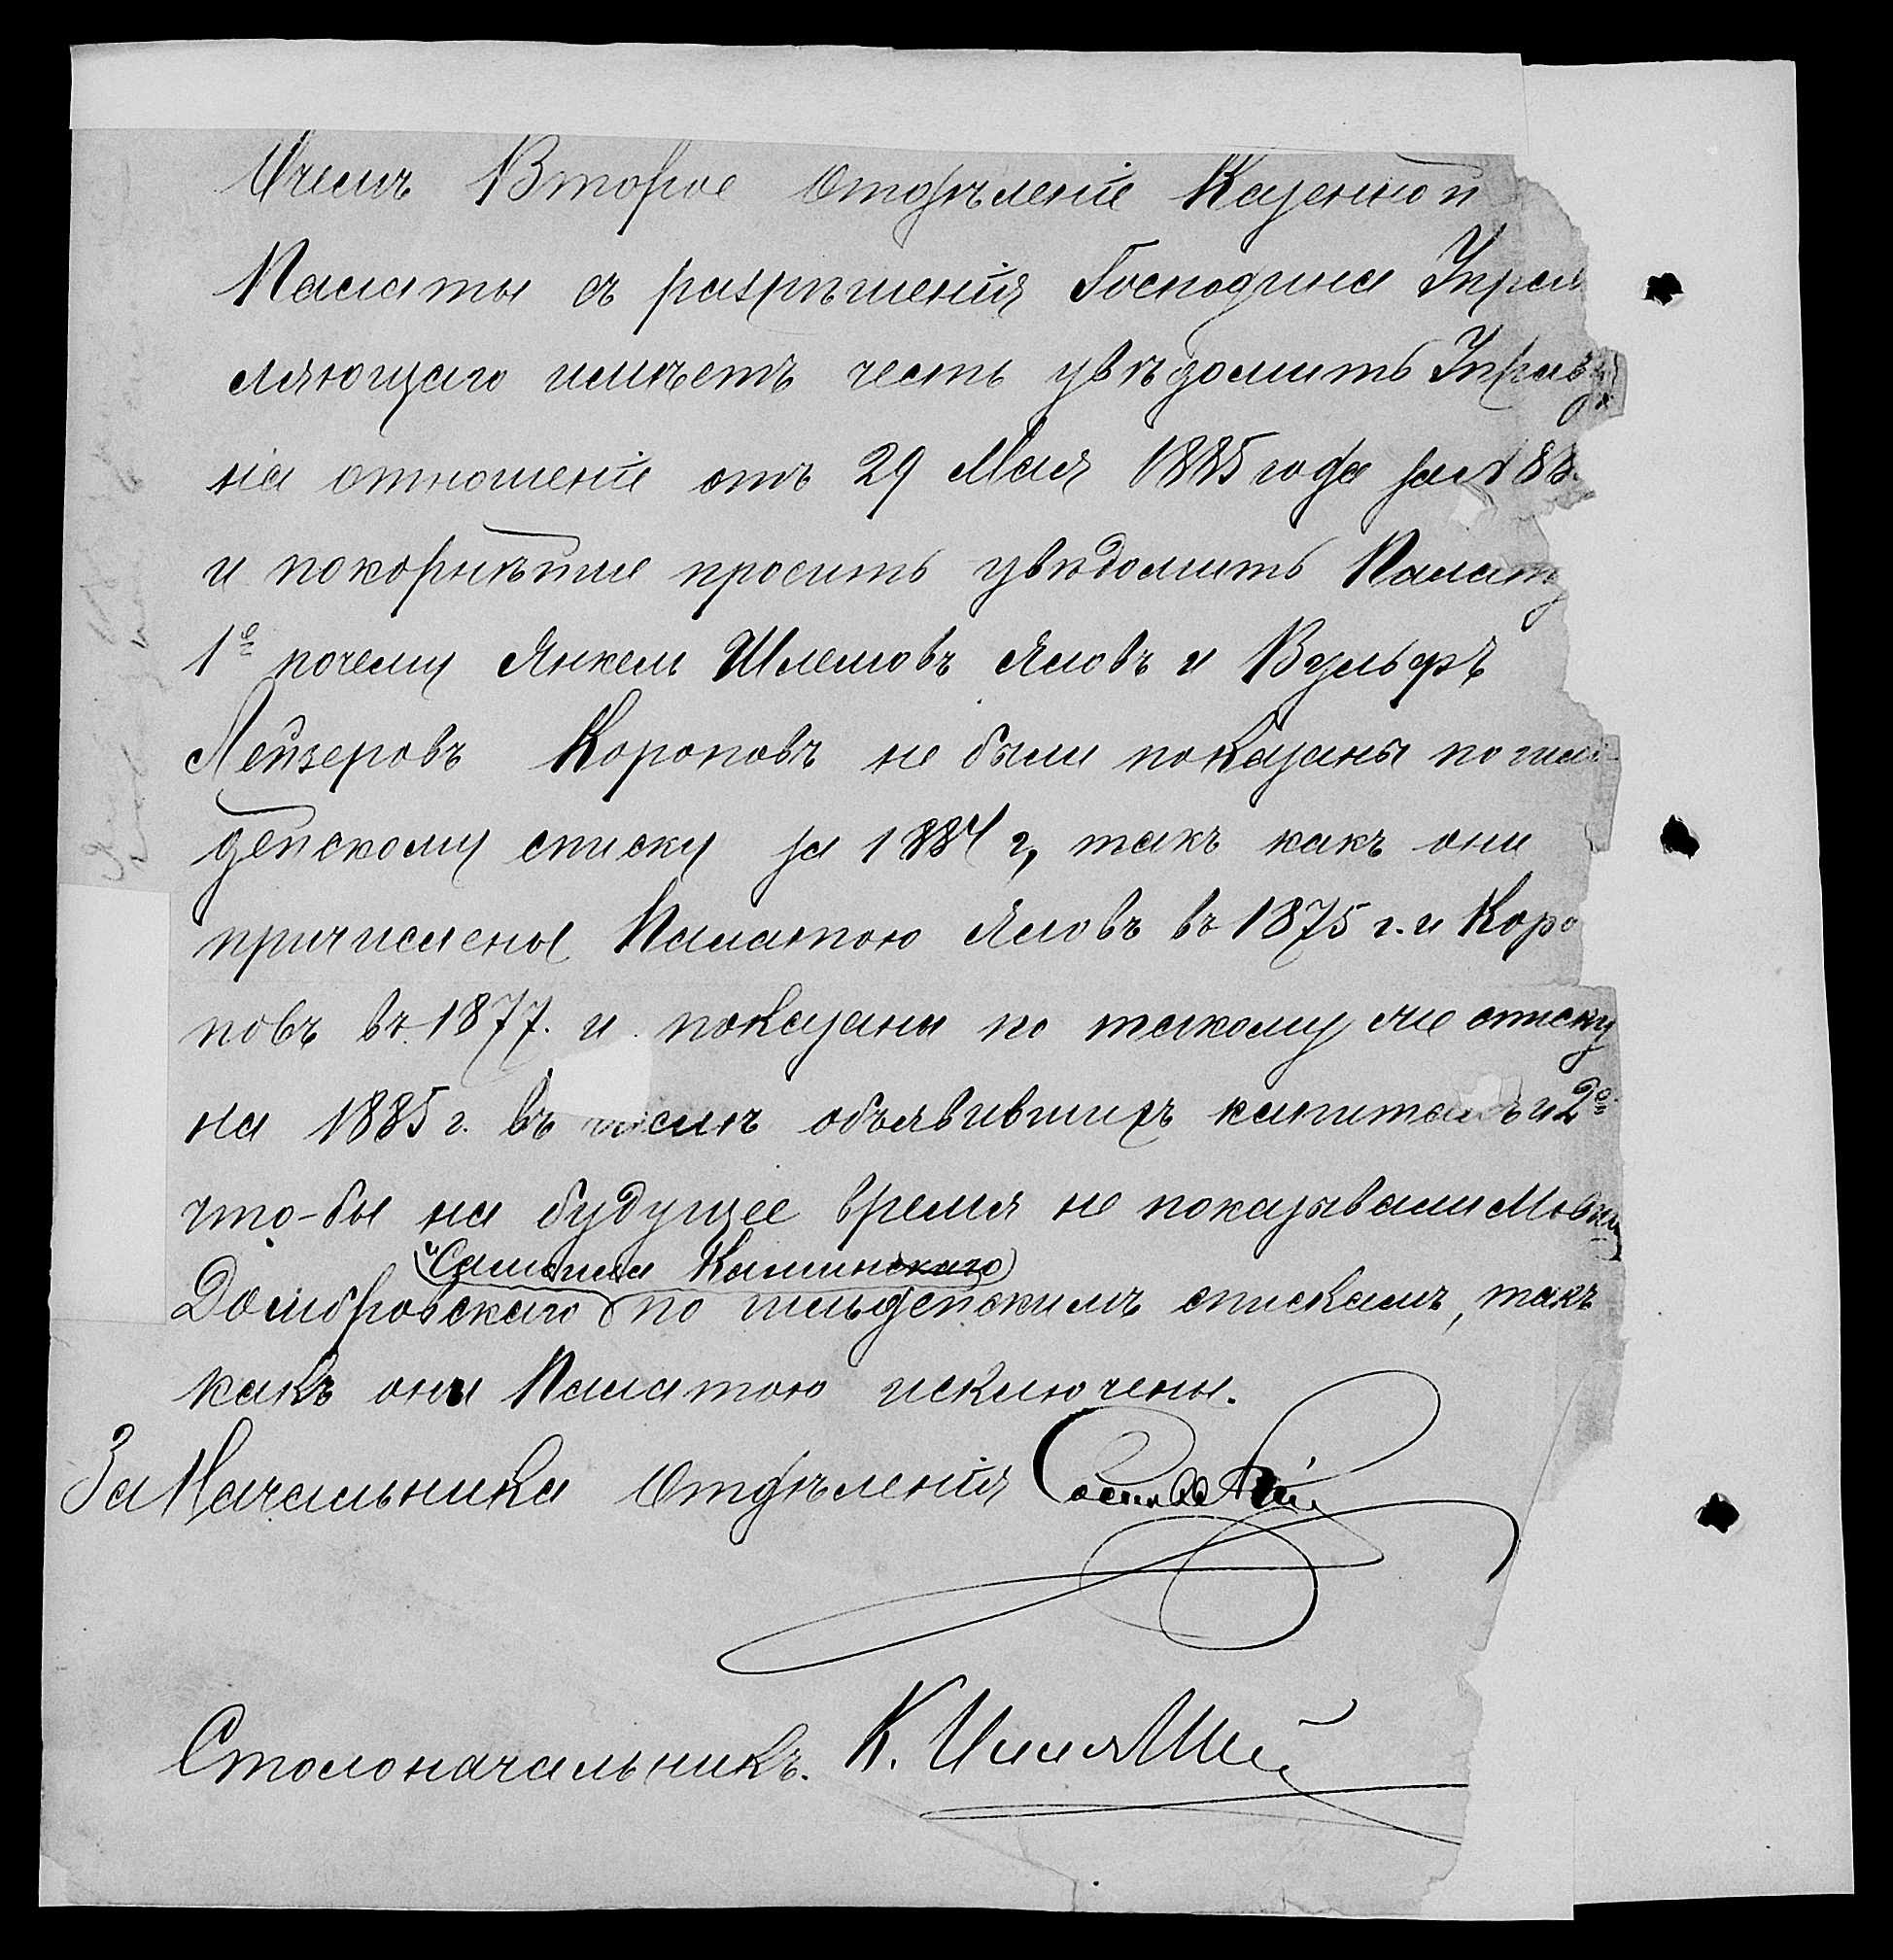 Симъ Второе Отдѣленіе Казенной
Палаты съ разрѣшенія Господина Управ
ляющаго имѣетъ честь увѣдомить Управу
на отношеніе отъ 29 Мая 1885 года за № 88
и покорнѣйше просить увѣдомить Палату
1е почему Янкель Шлемовъ Яловъ и Вульфъ
Лейзеровъ Короповъ не были показаны по гиль
дейскому списку за 1884 г, такъ какъ они
причислены Палатою Яловъ въ 1875 г. и Коро
повъ въ 1877. и показаны по такому же списку
на 1885 г. въ числѣ объявившихъ капиталъ и 2е
что-бы на будущее время не показывали
и Каминскаго
Домбровскаго по гильдейскимъ спискамъ, такъ
какъ они Палатою исключены.
За Начальника Отдѣленія
Столоначальникъ. К.